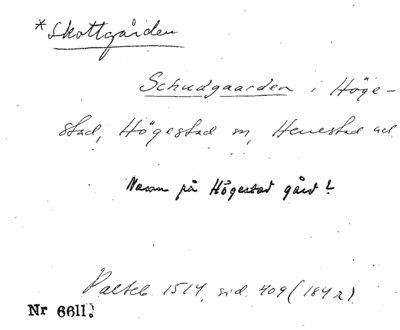 *Skottgården
Schudgaarden i Höge-
stad, Högestad sn, Herrestad hd
Namn på Högestad gård?
Palteb 1514, sid 409 (184 r)
Nr 6611.